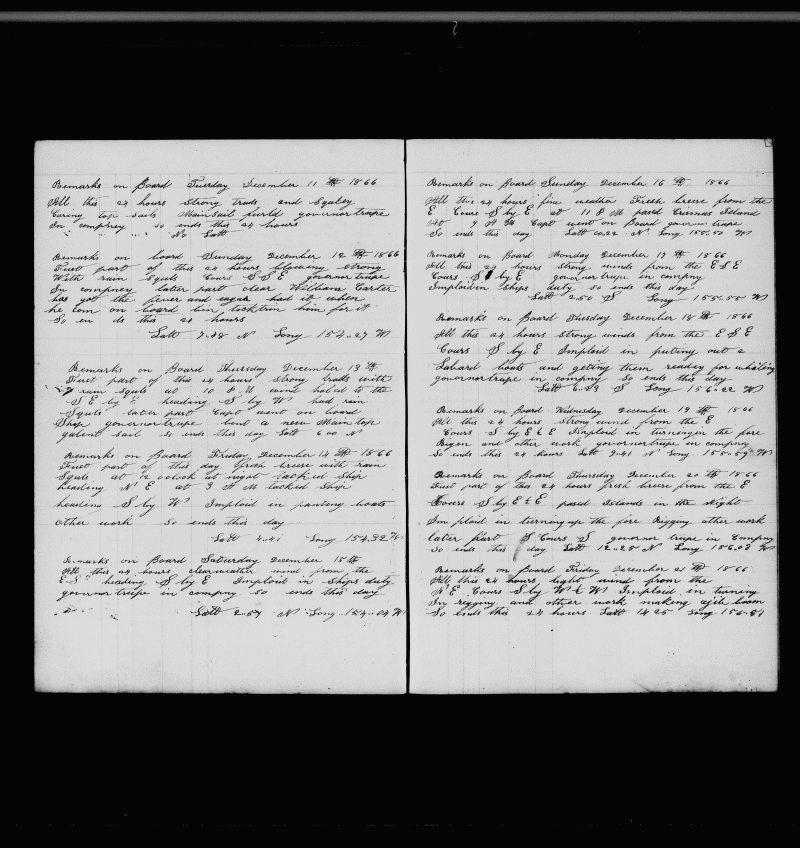 Remarks on Board Tuesday December 11 th 1866
All this 24 hours Strong trads and Squley
Caring top sails Mainsail furld governortrupe
In compney so ends this 24 hours
No Latt
Remarks on board Wednesday December 12 th 1866
First part of this 24 hours blowing strong
With rain Squls Cours S S E governortrupe
In compney later part clear William Carter
has got the fever and eagar had it when
he com on board ben doctrin him for it
So en ds this 24 hours
Latt 7.38 N Long 154..27 W
Remarks on Board Thursday December 13 th
First part of this 24 hours Strong trads with
rain squls at 10 P.M wind haled to the
S E by E heading S by W had rain
Squls later part Capt went on board
Ship governortrupe bent a new Main top
galent sail so ends this day Latt 6 00 N
Remarks on Board Friday December 14 th 1866
First part of this day fresh breeze with rain
Squls at 12 oclock at night tacked Ship
heading N E at 3 A M tacked Ship
heading S by W Imploid in panting boats
other work so ends this day
Latt 4.41 Long 154.32 W
Remarks on Board Saturday December 15 th
All this 24 hours clear weather wind from the
E S heading S by E Imploid in Ships duty
governortrupe in compny so ends this day
Latt 2..57 N Long 154..04 W
Remarks on Board Sunday December 16 th 1866
All this 24 hours fine weather Fresh breeze from the
E Cours S by E at 11 P M pased Crismas Island
At 9 A M Capt went on Board governortrupe
So ends this day Latt 00.22 N. Long 155..50 W
Remarks on Board Monday December 17 th 1866
All this 24 hours strong winds from the E S E
Cours S by E governortrupe in compny
Imploid in Ships duty so ends this day
Latt 2.50 S Long 155.55 W
Remarks on Board Thuesday December 18 th 1866
All this 24 hours strong winds from the E S E
Cours S by E Imploid in puting out a
Labard boats and geting them ready for whaling
governortrupe in compny So ends this day
Latt 6.23 S Long 156.22 W
Remarks on Board Wednesday December 19 th 1866
All this 24 hours Strong wind from the E
Cours S by E & E Imploid in turning in the fore
Rigen and other work governortrupe in compny
So ends this 24 hours Latt 9.41 N Long 155..59 W
Remarks on Board Thursday December 20 th 1866
First part of this 24 hours fresh breeze from the E
Cours S by E & E pased Islands in the Night
Im ploid in turning up the fore Rigging other work
later part S Cours S governor trupe in Compny
So ends this day Latt 12..25 N Long 156.08 W
Remarks on Board Friday December 21 th 1866
All this 24 hours light wind from the
N E Cours S by W & W Imploid in turning
In rigging and other work making gib boom
So ends this 24 hours Latt 14 25 Long 156.51